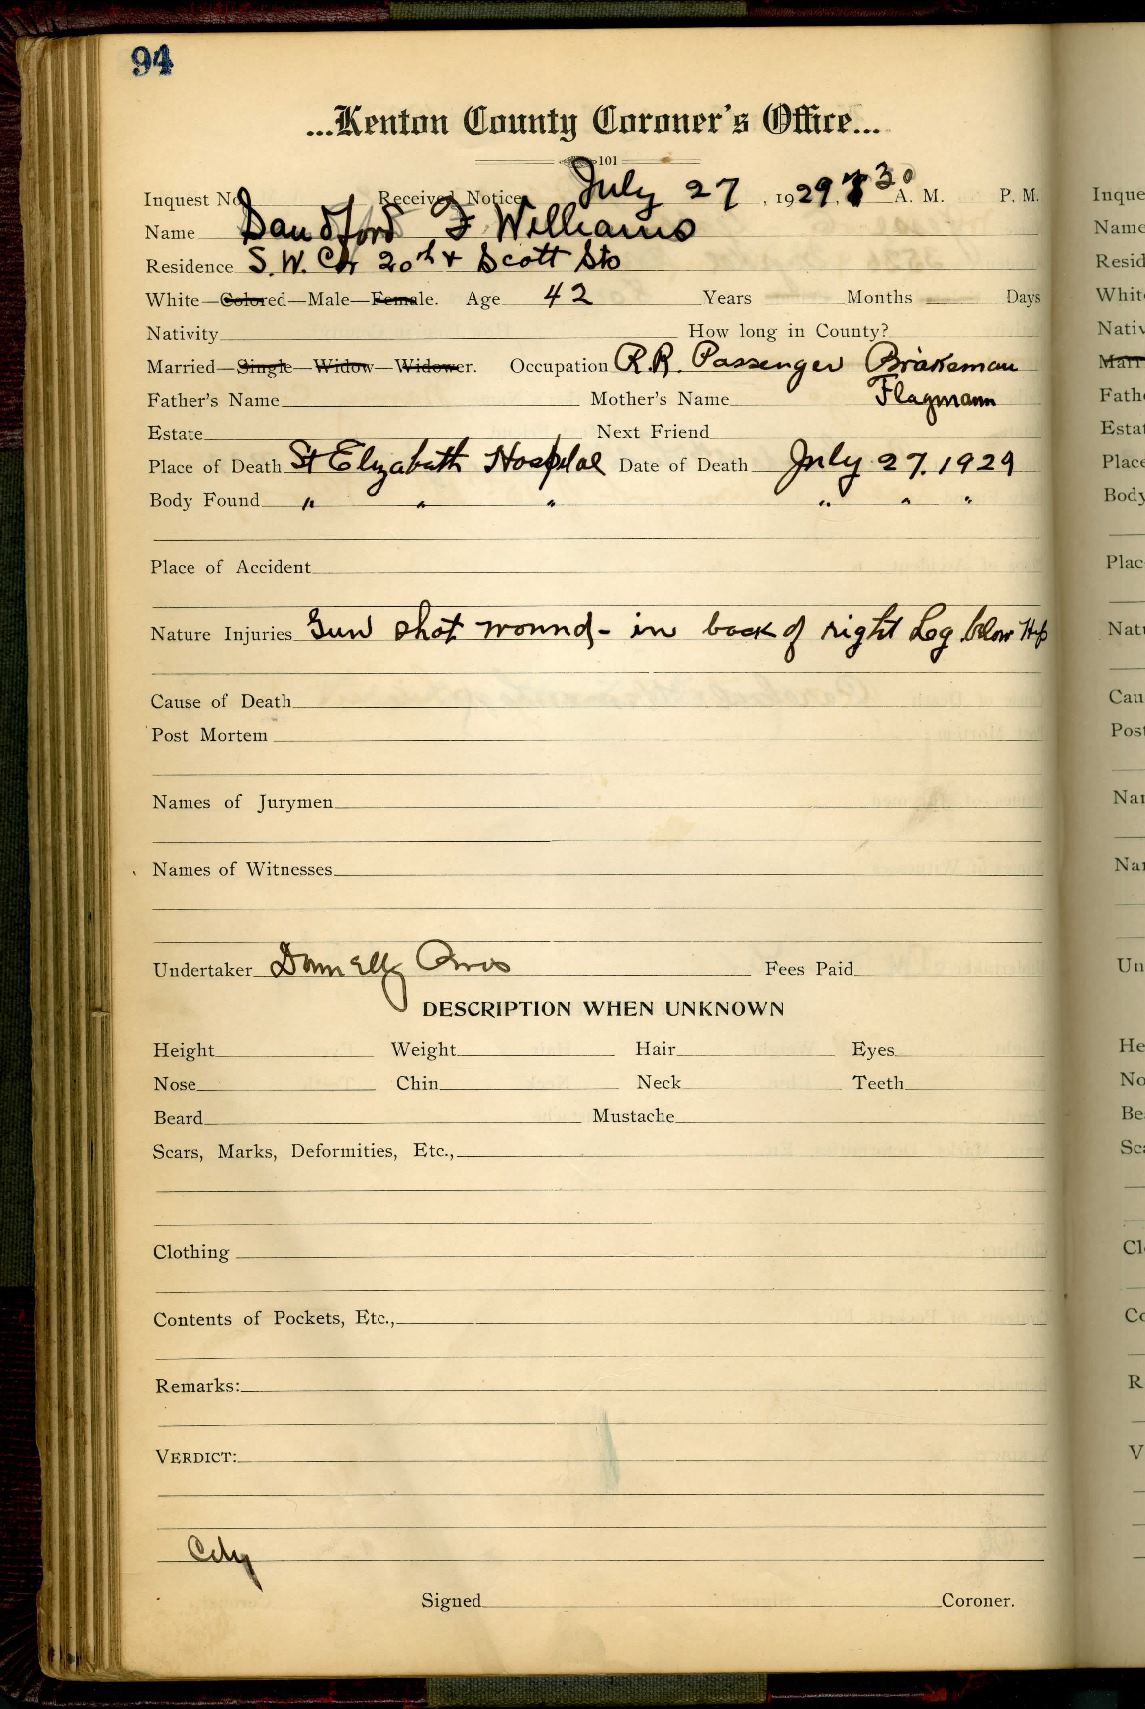 94
...Kenton County Coroner's Office...
101
Inquest No. Received Notice July 27, 1929, 30 A. M. P. M.
Name Sandford F Williams
Residence S.W. Cor 20th & Scott Sts
White—Colored—Male—Female. Age 42 Years Months Days
Nativity How long in County?
Married—Single—Widow—Widower. Occupation R.R. Passenger Brakeman
Flagmann
Father's Name Mother's Name
Estate Next Friend
Place of Death St Elizabeth Hospital Date of Death July 27. 1929
Body Found " " " " " "
Place of Accident
Nature Injuries Gun shot wound - in back of right Leg below Hip
Cause of Death
Post Mortem
Names of Jurymen
Names of Witnesses
Undertaker Donnelly Bros Fees Paid
DESCRIPTION WHEN UNKNOWN
Height Weight Hair Eyes
Nose Chin Neck Teeth
Beard Mustache
Scars, Marks, Deformities, Etc.,
Clothing
Contents of Pockets, Etc.,
Remarks:
VERDICT:
City
Signed Coroner.
Inque
Name
Resid
White
Nativ
Marr
Fath
Estat
Place
Body
Plac
Natu
Cau
Post
Nar
Nar
Un
He
No
Be
Sca
Cl
Co
R
V